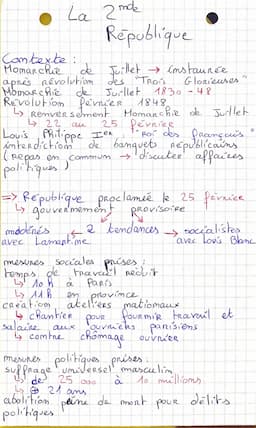 La 2nde
République
Contexte :
Monarchie de Juillet → instaurée
après révolution des "Trois Glorieuses"
Monarchie de Juillet 1830-48
Révolution février 1848
↳ renversement Monarchie de Juillet
↳ 22 au 25 février
Louis Philippe Ier "roi des français"
interdiction de banquets républicains
(repas en commun → discuter affaires
politiques)
⇒ République proclamée le 25 février
↳ gouvernement provisoire
modérés ← 2 tendances → socialistes
avec Lamartine avec Louis Blanc
mesures sociales prises :
temps de travail réduit
↳ 10h à Paris
↳ 11h en province
création ateliers nationaux
↳ chantier pour fournir travail et
salaire aux ouvriers parisiens
↳ contre chômage ouvrier
mesures politiques prises :
suffrage universel masculin
↳ de 25 000 à 10 millions
↳ 21 ans
abolition peine de mort pour délits
politiques